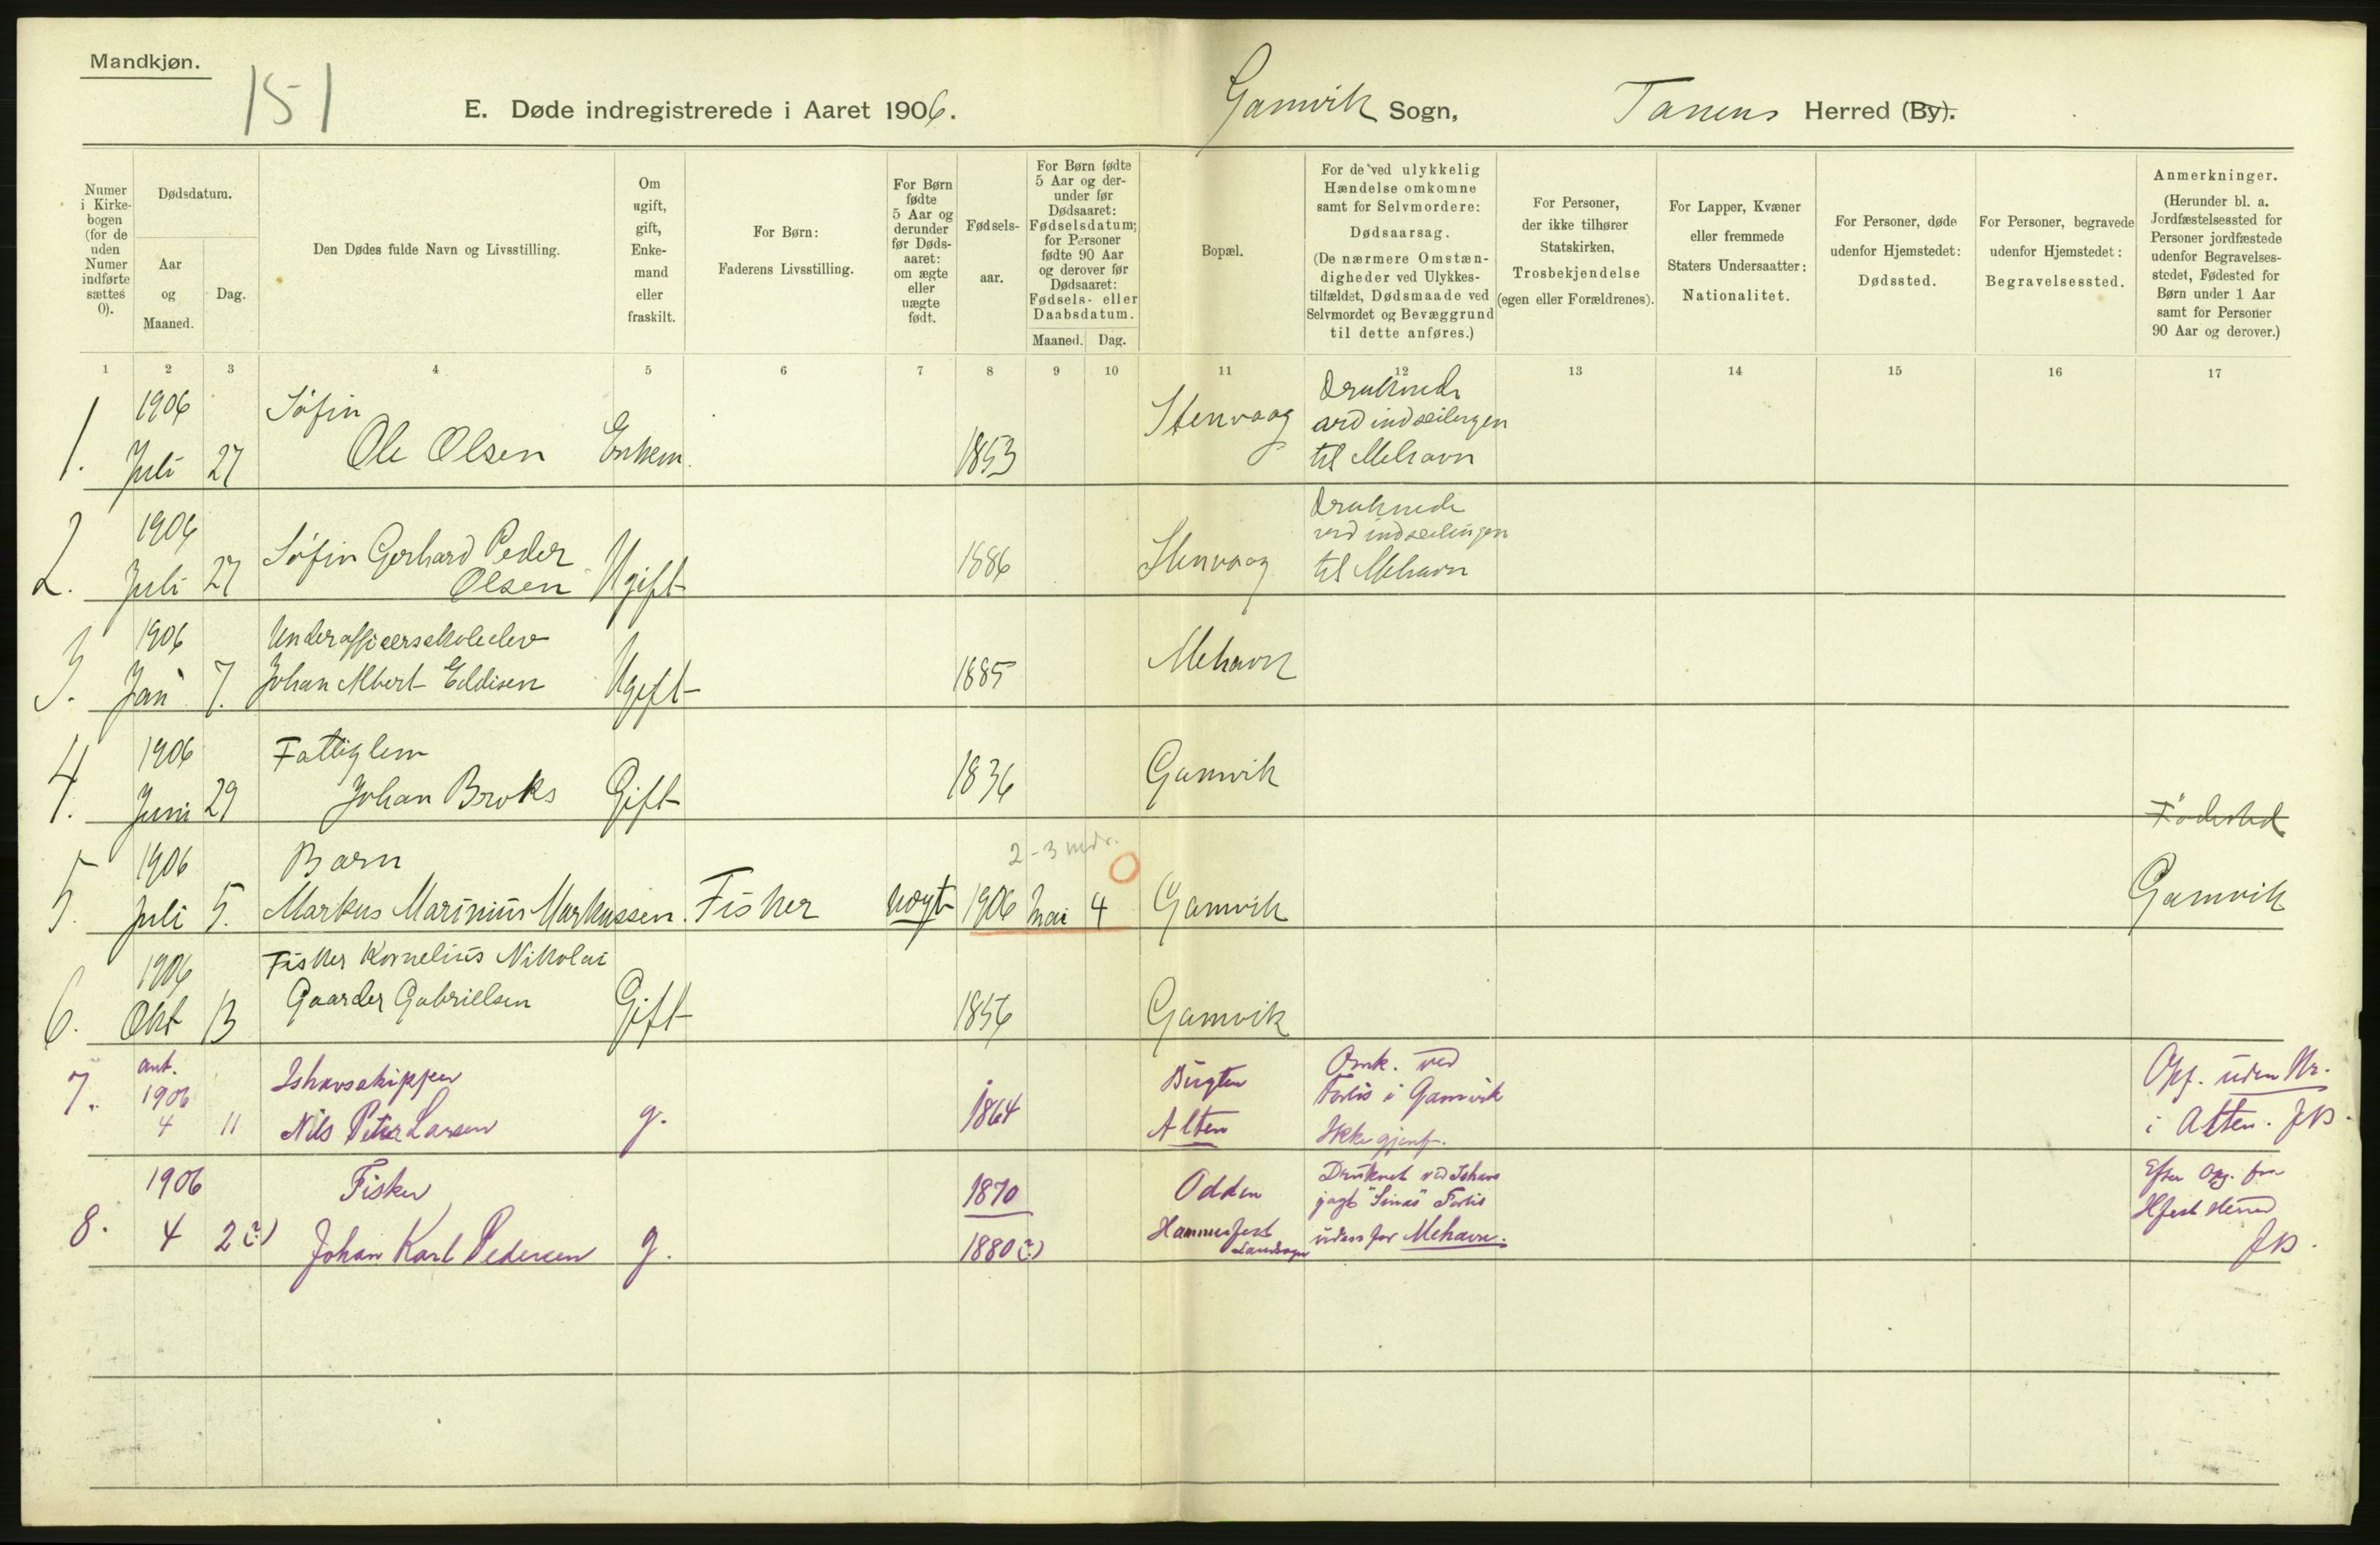 Mandkjøn.
151
E. Døde indregistrerede i Aaret 1906.
Gamvik Sogn,
Tanens Herred (By).
Numer i Kirkebogen (for de uden Numer indførte sættes 0).
Dødsdatum.
Aar og Maaned.
Dag.
Den Dødes fulde Navn og Livsstilling.
Om ugift, gift, Enkemand eller fraskilt.
For Børn: Faderens Livsstilling.
For Børn fødte 5 Aar og derunder før Dødsaaret: om ægte eller uægte født.
Fødselsaar.
For Børn fødte 5 Aar og derunder før Dødsaaret: Fødselsdatum; for Personer fødte 90 Aar og derover før Dødsaaret: Fødsels- eller Daabsdatum.
Maaned. Dag.
Bopæl.
For de ved ulykkelig Hændelse omkomne samt for Selvmordere: Dødsaarsag.
(De nærmere Omstændigheder ved Ulykkestilfældet, Dødsmaade ved Selvmordet og Bevæggrund til dette anføres.)
For Personer, der ikke tilhører Statskirken, Trosbekjendelse (egen eller Forældrenes).
For Lapper, Kvæner eller fremmede Staters Undersaatter: Nationalitet.
For Personer, døde udenfor Hjemstedet: Dødssted.
For Personer, begravede udenfor Hjemstedet: Begravelsessted.
Anmerkninger.
(Herunder bl. a. Jordfæstelsessted for Personer jordfæstede udenfor Begravelsesstedet, Fødested for Børn under 1 Aar samt for Personer 90 Aar og derover.)
1 2 3 4 5 6 7 8 9 10 11 12 13 14 15 16 17
1906 Søfin Druknede
1. Juli 27 Ole Olsen Enkem. 1853 Stenvaag ved indseilingen
til Mehavn
1906 Druknede
2. Juli 27 Søfin Gerhard Peder Ugift 1886 Stenvaag ved indseilingen
Olsen til Mehavn
1906 Underofficersskoleelev
3. Jan 7. Johan Albert Eddisen Ugift 1885 Mehavn
1906 Fattiglem
4. Juni 29 Johan Broks Gift 1836 Gamvik
Fødested
1906 Barn 2-3 mdr.
5. Juli 5. Markus Marinius Markussen. Fisker uægt 1906 Mai 4 Gamvik Gamvik
1906 Fisker Kornelius Nikolai
6. Okt 13 Gaarder Gabrielsen Gift 1856 Gamvik
ant. Ishavsskipper Omk. ved Opf. uden Nr.
7. 1906 Forlis i Gamvik
4 11 Nils Peter Larsen g. 1864 Alten Ikke gjenf. i Alten. JB.
1906 Fisker 1870 Odden Druknet ved Ishavs Efter Opg. fra
jagt "Sinas" Forlis
8. 4 2(?) Johan Karl Pedersen g. 1880(?) Hammerfest udenfor Mehavn.
Landsogn
JB.